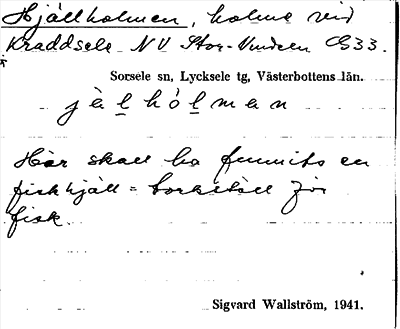 Hjällholmen, holme vid
Kraddsele NV Stor-Vindeln G33.
Sorsele sn, Lycksele tg, Västerbottens län.
jàl̲hól̲man
Här skall ha funnits en
fiskhjäll = torkställ för
fisk.
Sigvard Wallström, 1941.